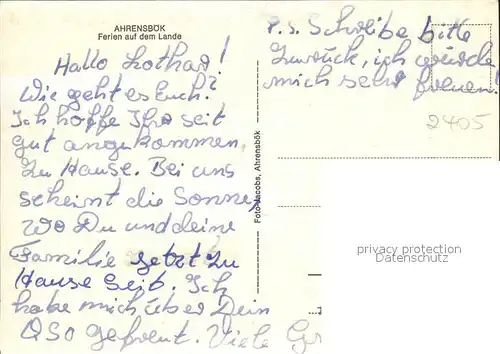 AHRENSBÖK
Ferien auf dem Lande
Hallo Lothar!
Wie geht es Euch?
Ich hoffe Ihr seit
gut angekommen,
zu Hause. Bei uns
scheint die Sonne,
wo Du und deine
Familie jetzt zu
Hause Seit. Ich
habe mich über Dein
QSO gefreut. Viele Gr
P.S. Schreibe bitte
zurück, ich würde
mich sehr freuen!
2405
Foto-Jacobs, Ahrensbök
privacy protection
Datenschutz